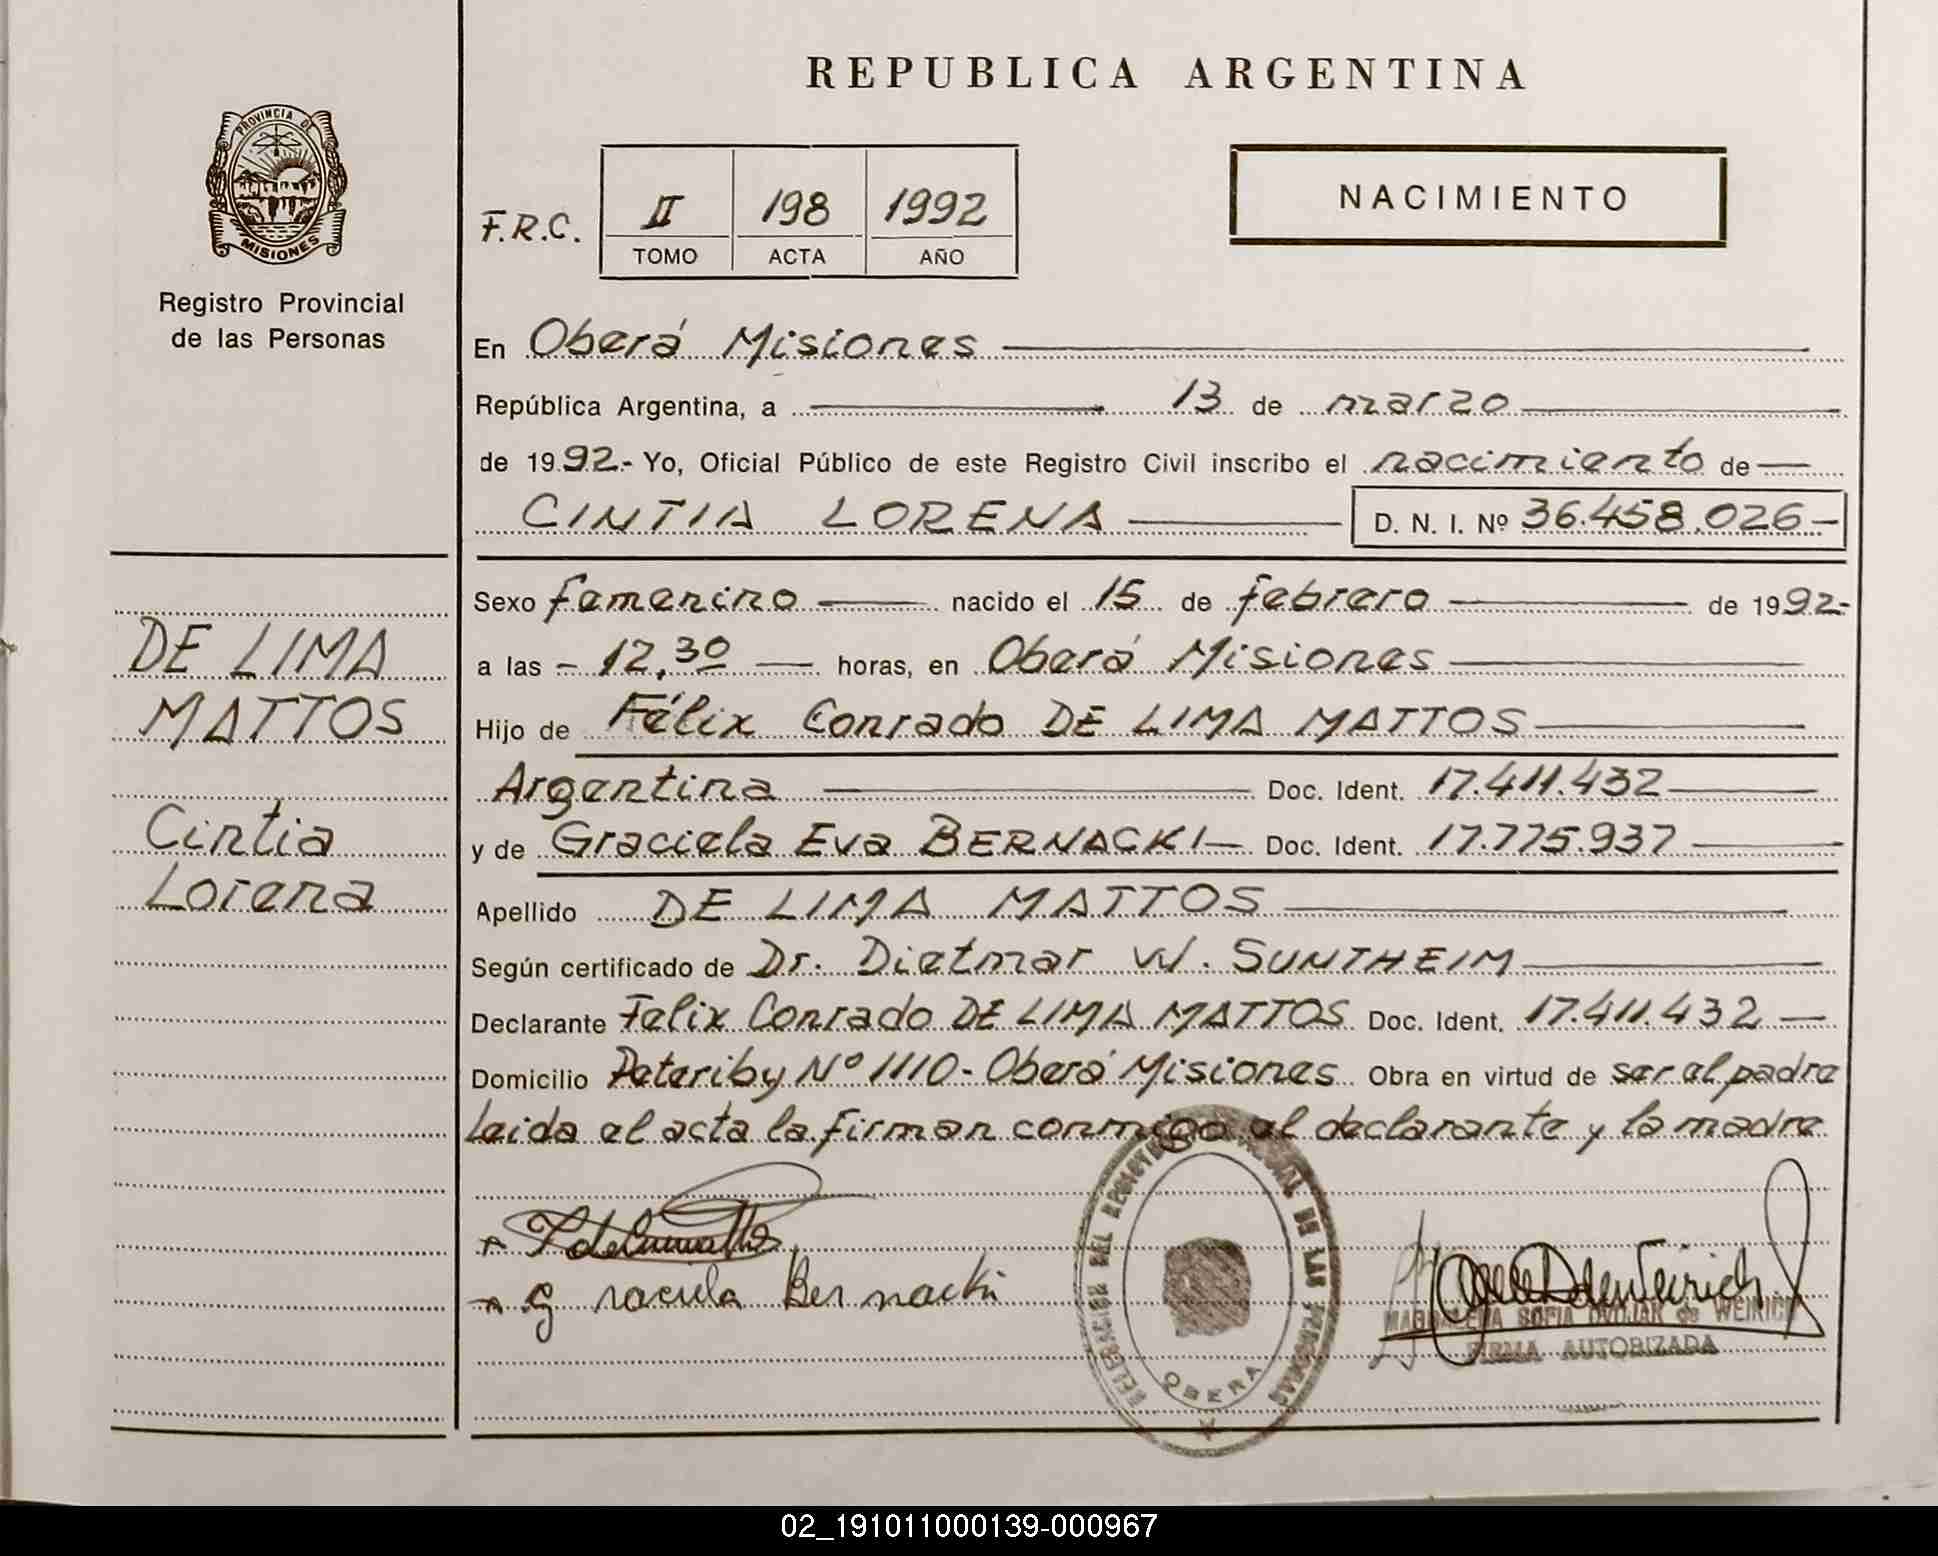 REPUBLICA ARGENTINA
PROVINCIA DE
MISIONES
Registro Provincial
de las Personas
F.R.C.
II 198 1992
TOMO ACTA AÑO
NACIMIENTO
En Oberá Misiones
República Argentina, a 13 de marzo
de 1992.- Yo, Oficial Público de este Registro Civil inscribo el nacimiento de
CINTIA LORENA D. N. I. Nº 36.458.026-
Sexo femenino nacido el 15 de febrero de 1992-
a las - 12,30 horas, en Oberá Misiones
Hijo de Félix Conrado DE LIMA MATTOS
Argentina Doc. Ident. 17.411.432
y de Graciela Eva BERNACKI Doc. Ident. 17.775.937
Apellido DE LIMA MATTOS
Según certificado de Dr. Dietmar W. SUNTHEIM
Declarante Felix Conrado DE LIMA MATTOS Doc. Ident. 17.411.432
Domicilio Peteriby Nº 1110- Oberá Misiones Obra en virtud de ser el padre
Leida el acta la firman conmigo el declarante y la madre
DE LIMA
MATTOS
Cintia
Lorena
Graciela Bernacki
DELEGACION DEL REGISTRO PROVINCIAL DE LAS PERSONAS
OBERA
MAGDALENA SOFIA DVOJAK de WEIRICH
FIRMA AUTORIZADA
02_191011000139-000967